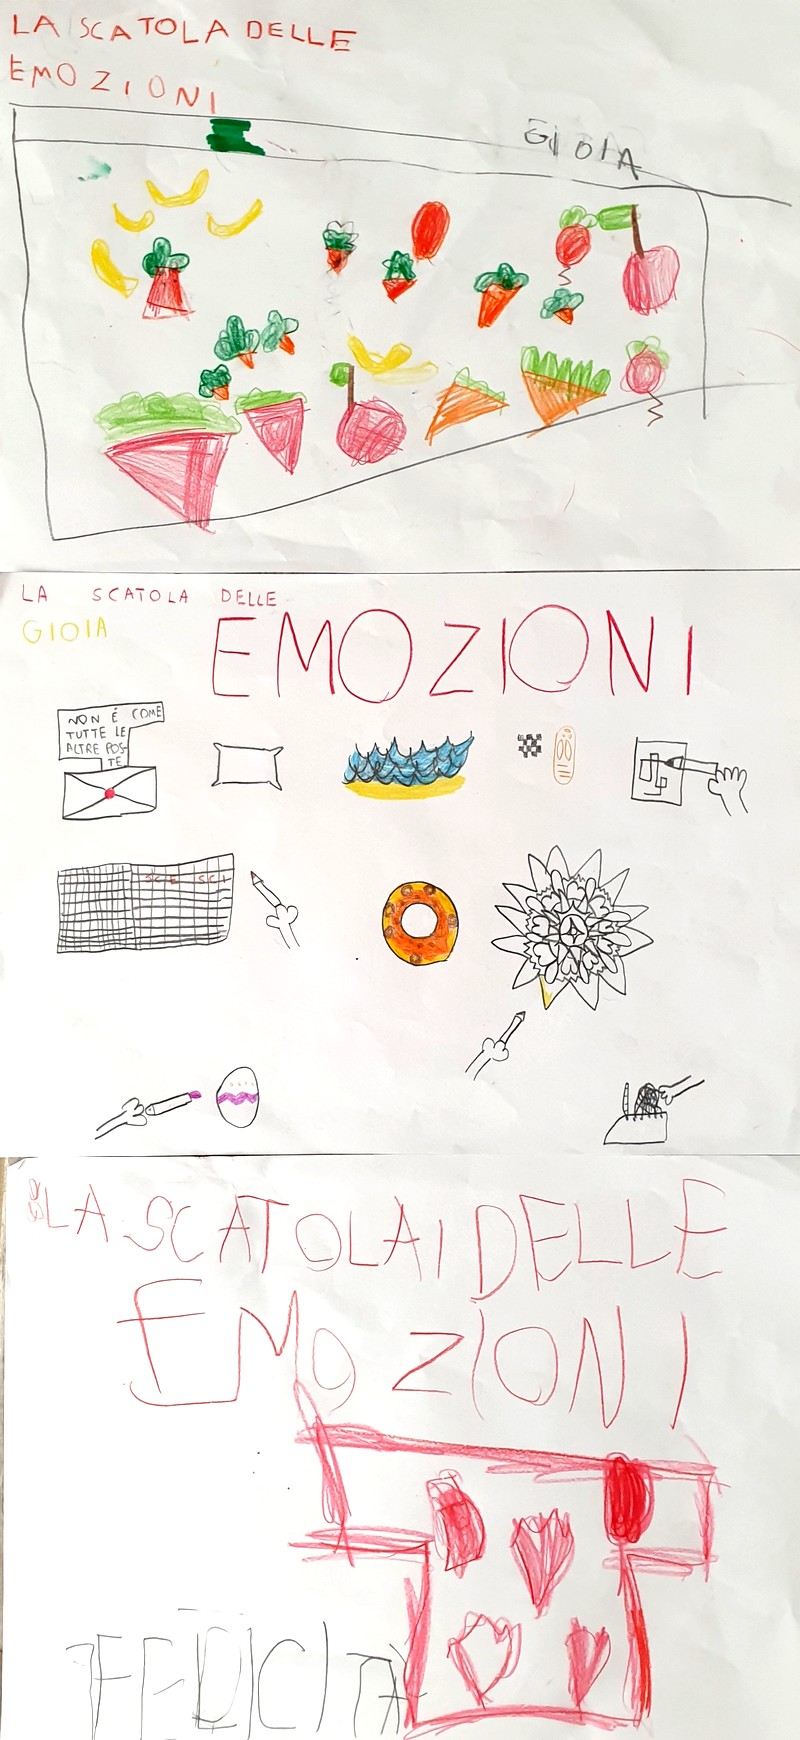 LA SCATOLA DELLE
EMOZIONI
GIOIA
LA SCATOLA DELLE
EMOZIONI
GIOIA
NON É COME
TUTTE LE
ALTRE POS-
TE
LA SCATOLA DELLE
EMOZIONI
FELICITÀ